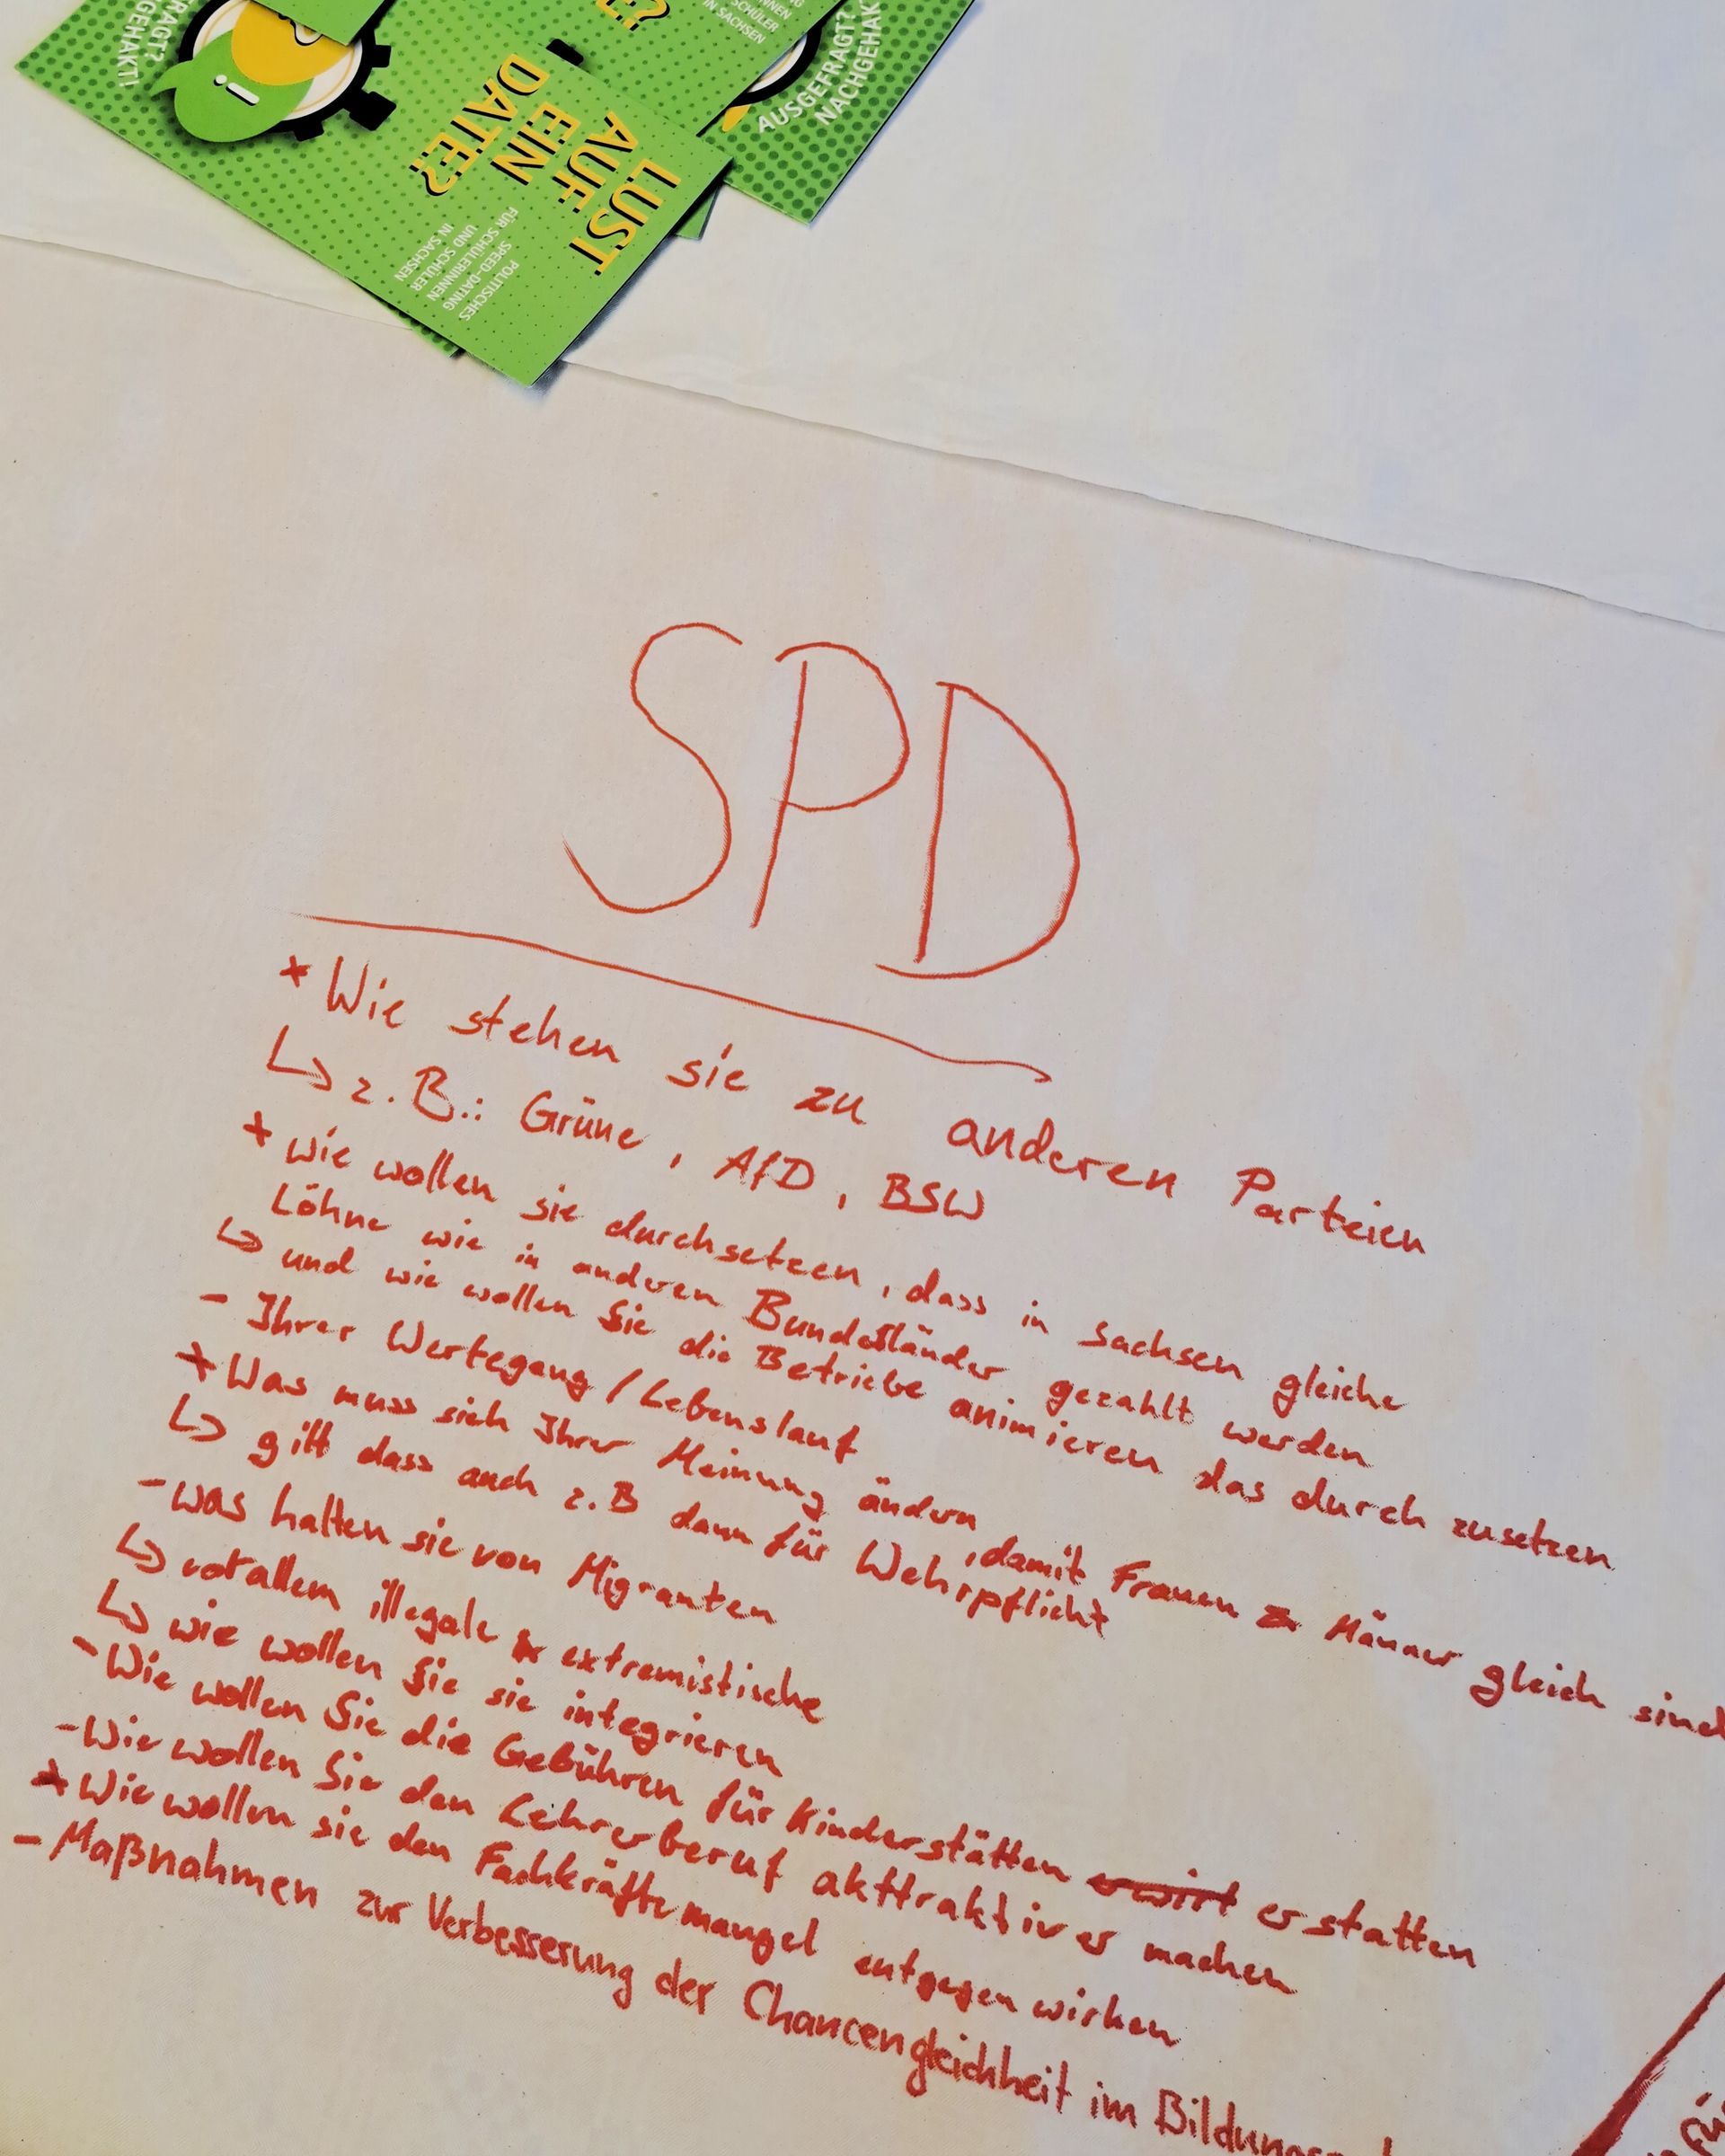 RAGT?
GEHAKT!
E?
NNEN
SCHÜLER
IN SACHSEN
AUSGEFRAGT?
NACHGEHAK
LUST
AUF
EIN
DATE?
POLITISCHES
SPEED-DATING
FÜR SCHÜLERINNEN
UND SCHÜLER
IN SACHSEN
SPD
* Wie stehen sie zu anderen Parteien
↳ z.B.: Grüne, AfD, BSW
* wie wollen sie durchsetzen, dass in Sachsen gleiche
Löhne wie in anderen Bundesländer gezahlt werden
↳ und wie wollen Sie die Betriebe animieren das durch zusetzen
- Ihrer Wertegang / Lebenslauf
* Was muss sich Ihrer Meinung ändern, damit Frauen & Männer gleich sind
↳ gilt dass auch z.B dann für Wehrpflicht
- was halten sie von Migranten
↳ vorallem illegale & extremistische
↳ wie wollen Sie sie integrieren
- Wie wollen Sie die Gebühren für Kinderstätten erstatten
- Wie wollen Sie den Lehrerberuf akttraktiver machen
* Wie wollen sie den Fachkräftemangel entgegen wirken
- Maßnahmen zur Verbesserung der Chancengleichheit im